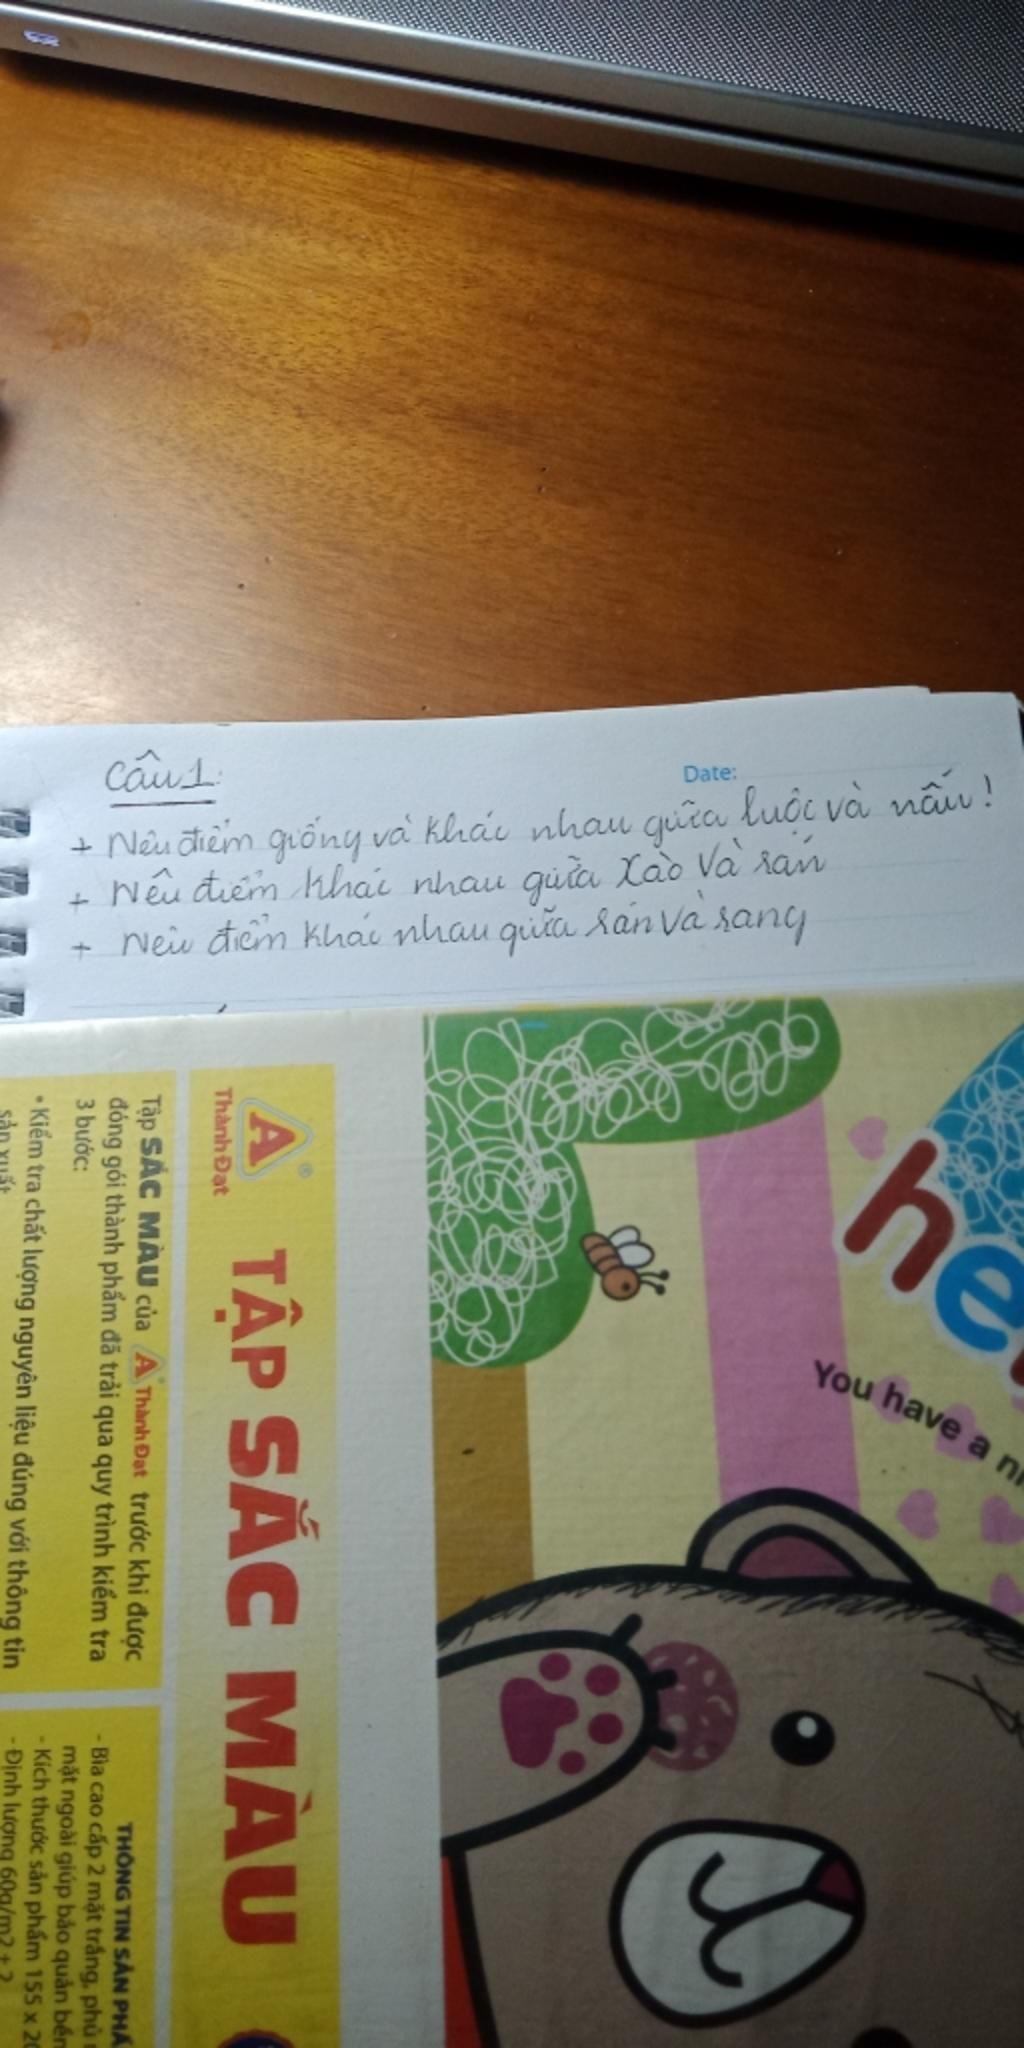 Câu 1:
Date:
+ Nêu điểm giống và khác nhau giữa luộc và nấu!
+ Nêu điểm khác nhau giữa xào và rán
+ Nêu điểm khác nhau giữa rán và rang
A
®
Thành Đạt
TẬP SẮC MÀU
Tập SẮC MÀU của A Thành Đạt trước khi được
đóng gói thành phẩm đã trải qua quy trình kiểm tra
3 bước:
• Kiểm tra chất lượng nguyên liệu đúng với thông tin
sản xuất
THÔNG TIN SẢN PHẨ
- Bìa cao cấp 2 mặt trắng, phủ
mặt ngoài giúp bảo quản bền
- Kích thước sản phẩm 155 x 20
- Định lượng 60g/m2 ± 2
he
You have a ni